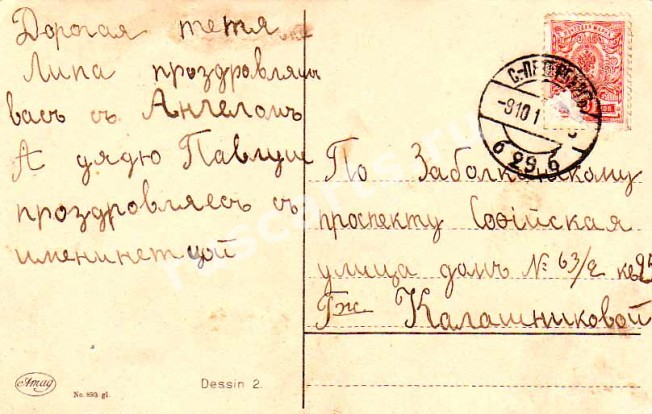 Дорогая тетя
Липа проздравляем
васъ съ Ангеломъ
А дядю Павлуш
проздровляемъ съ
имениннетцой
С.-ПЕТЕРБУРГЪ
-9101
6 29. 6
По Забалканскому
проспекту Софійская
улица домъ № 63/2 кв 25
Гж. Калашниковой
Amag
No. 893 gl.
Dessin 2.
ruscards.ru